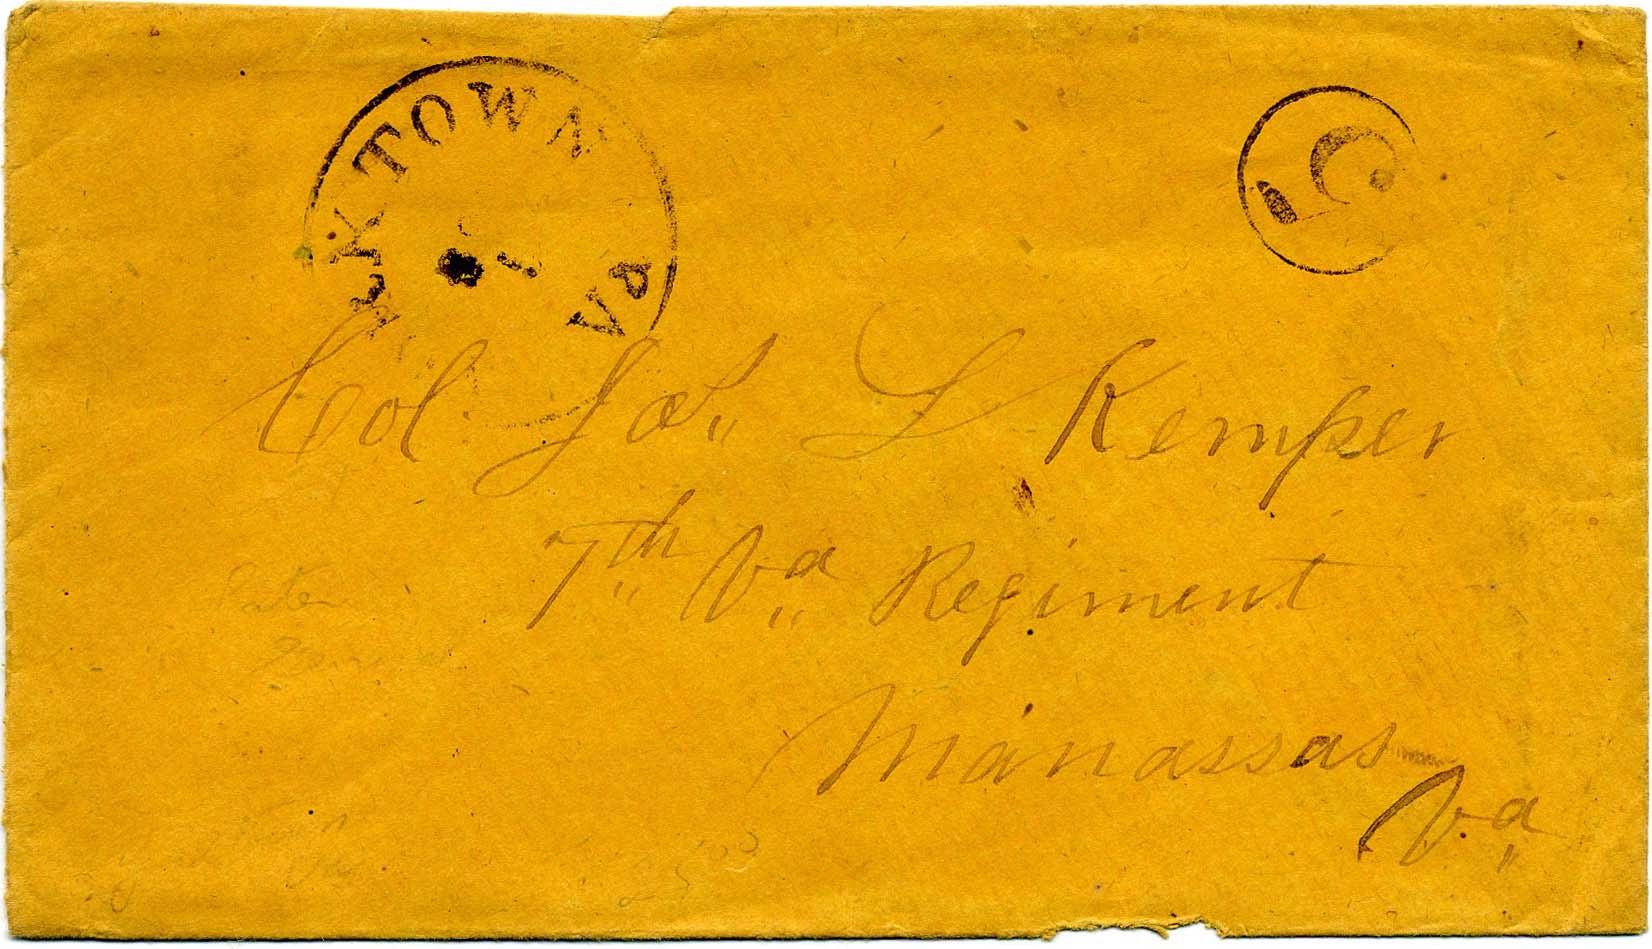 CKTOWN
Col. Jas,, L Kemper
7th,, Va,, Regiment
Manassas
Va,,